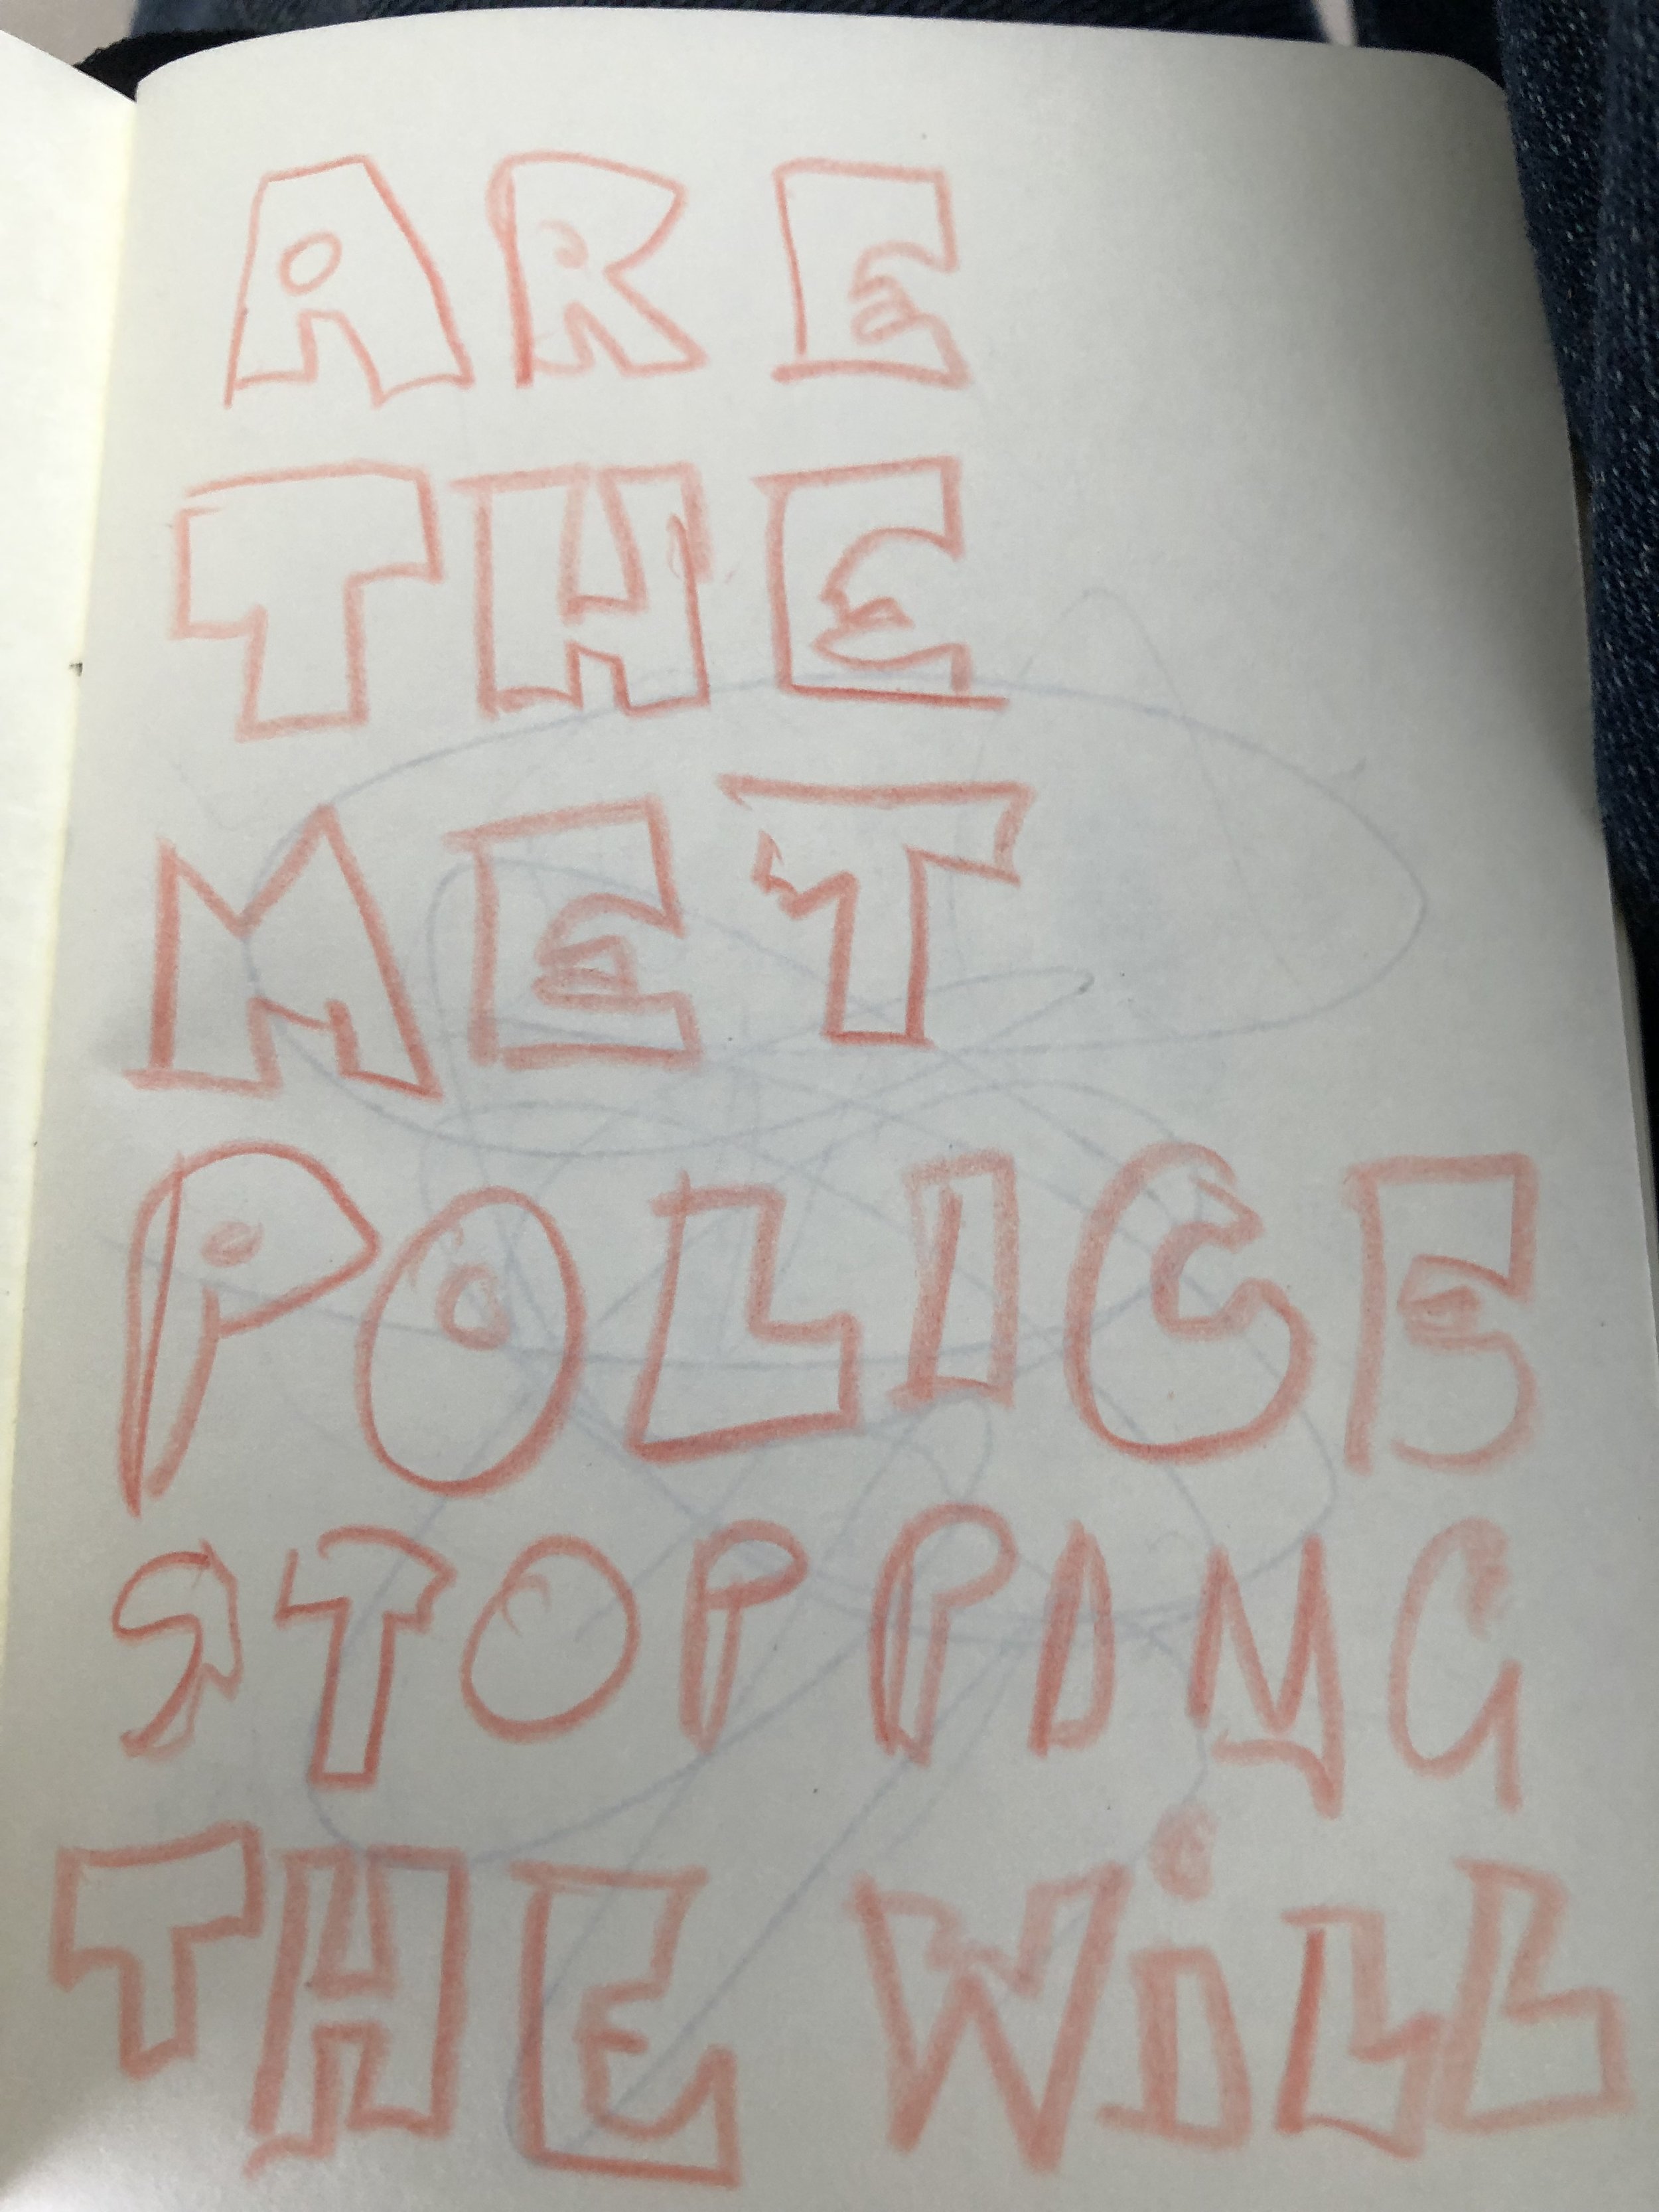 ARE
THE
MET
POLICE
STOPPING
THE WiLL